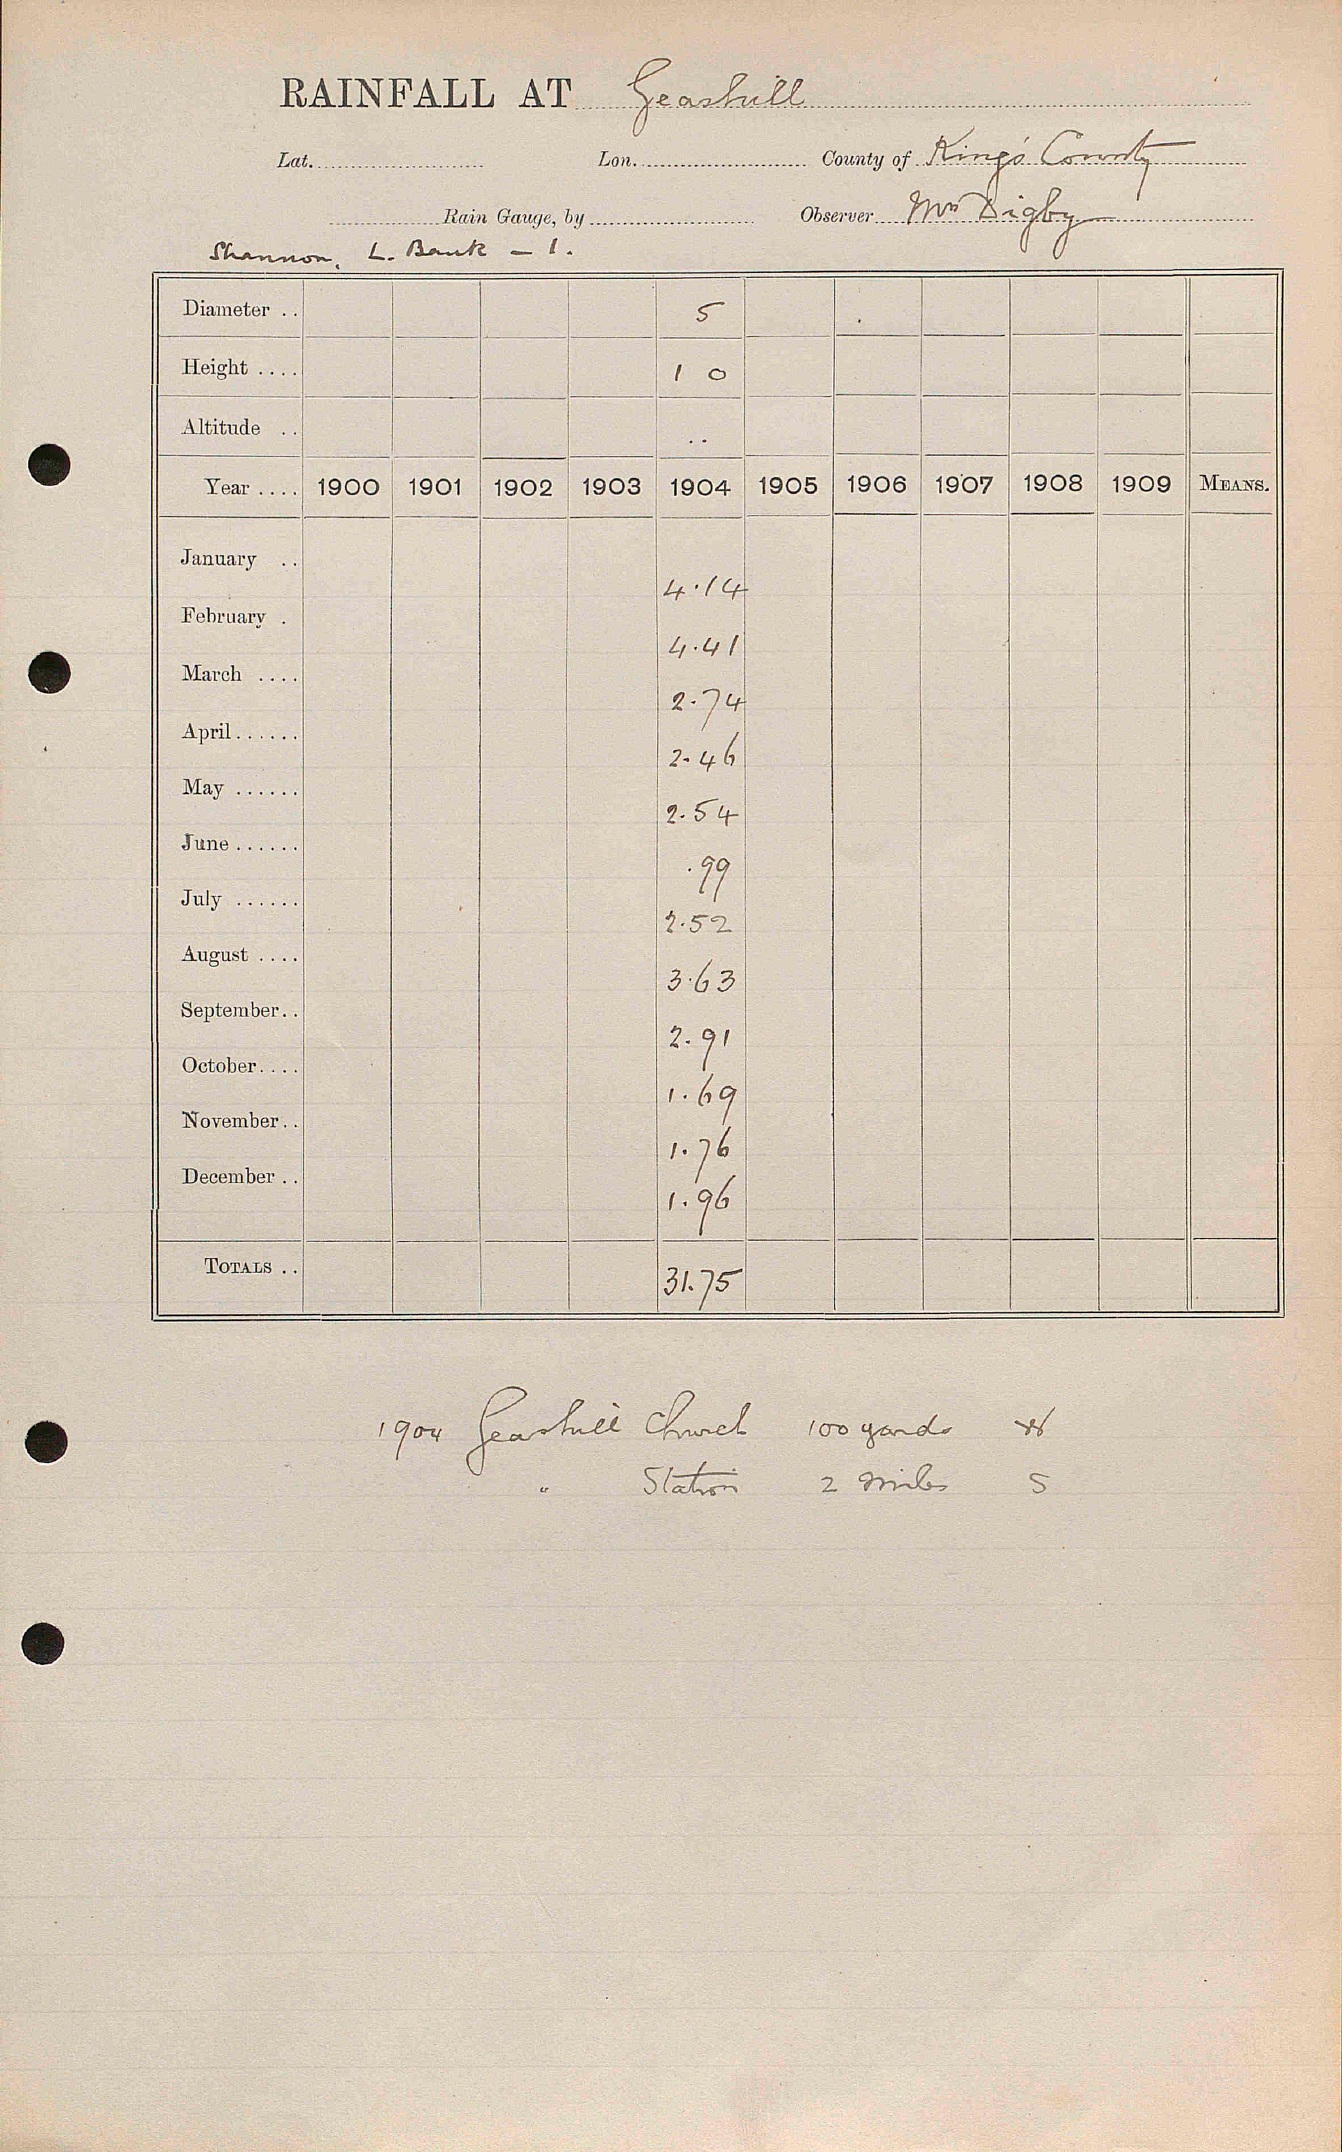 RAINFALL AT Geashill
Lat. Lon. County of King's County
Rain Gauge, by Observer Mrs Digby
Shannon, L. Bank - 1.
Diameter .. 5
Height .... 1 0
Altitude .. ..
Year .... 1900 1901 1902 1903 1904 1905 1906 1907 1908 1909 MEANS.
January .. 4.14
February . 4.41
March .... 2.74
April ...... 2.46
May ...... 2.54
June ...... .99
July ...... 2.52
August .... 3.63
September.. 2.91
October.... 1.69
November.. 1.76
December .. 1.96
TOTALS .. 31.75
1904 Geashill Church 100 yards W
" Station 2 miles S